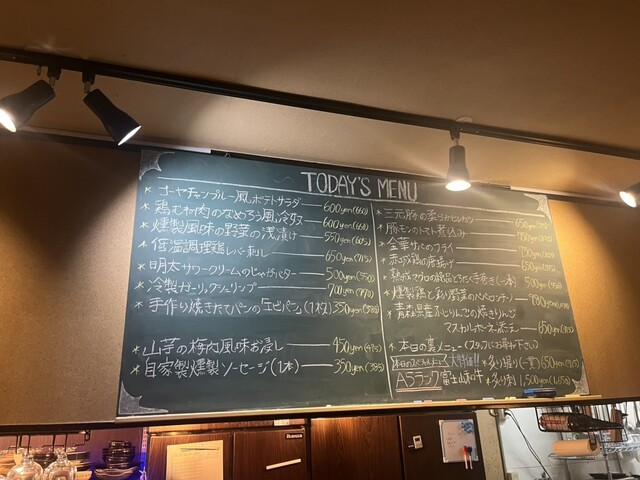 TODAY'S MENU
* ゴーヤチャンプルー風ポテトサラダ 600yen(660)
* 鶏むね肉のなめろう風冷奴 600yen(660)
* 燻製風味の野菜の浅漬け 550yen(605)
* 低温調理鶏レバー刺し 650yen(715)
* 明太サワークリームのじゃがバター 500yen(550)
* 冷製ガーリックシュリンプ 700yen(770)
* 手作り焼きたてパンの「エビパン」(1枚) 350yen(385)
* 山芋の梅肉風味お浸し 450yen(495)
* 自家製燻製ソーセージ(1本) 350yen(385)
* 三元豚の柔らかヒレカツ
* 豚モンのトマト煮込み
* 金華サバのフライ
* 赤城鶏の唐揚げ
* 熟成マグロの絶品とろたく手巻き(一本)
* 燻製鶏と彩り野菜のペペロンチーノ
* 青森県産ふじりんごの焼きりんご
マスカルポーネ添え 650yen
* 本日の裏メニュー(スタッフにお尋ね下さい)
本日のスペシャルメニュー 大特価!! * 炙り握り(一貫) 650yen(715)
A5ランク富士山和牛 * 炙り刺 1,500yen(1,650)